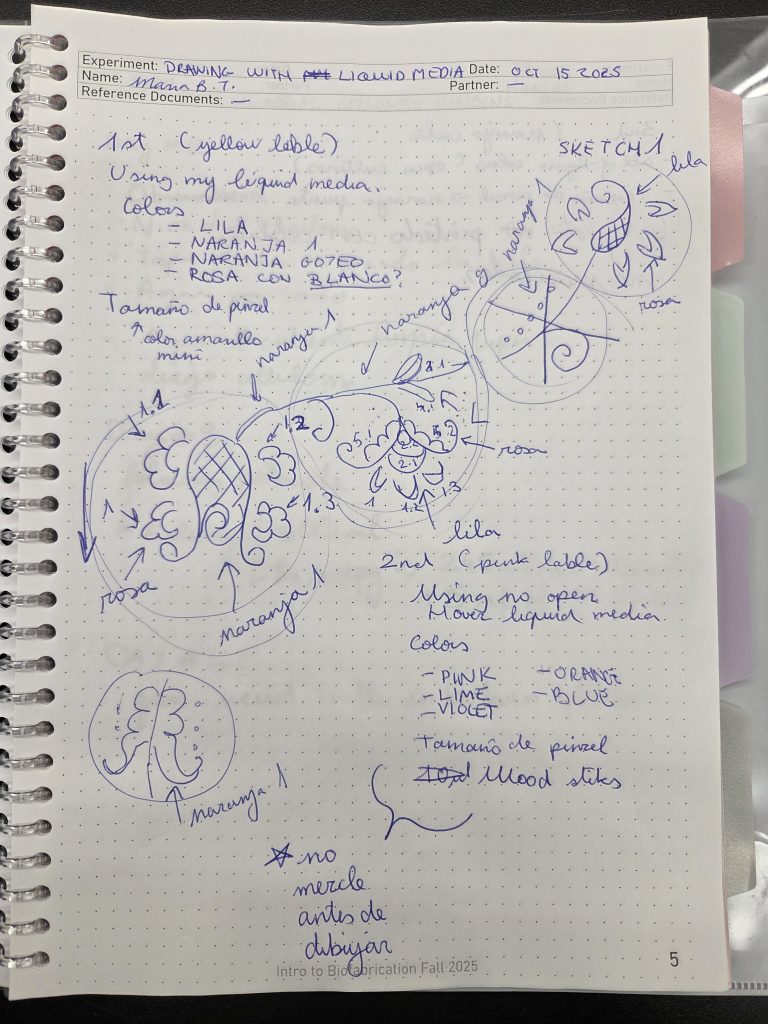 Experiment: DRAWING WITH LIQUID MEDIA Date: OCT 15 2025
Name: Maria B. T. Partner: —
Reference Documents: —
1st (yellow lable)
Using my liquid media.
Colors
- LILA
- NARANJA 1
- NARANJA GOTEO
- ROSA CON BLANCO?
Tamaño de pinzel
↑ color amarillo
mini
SKETCH 1
lila
naranja 1
rosa
naranja g
naranja 1
1.1
1.2
1
1.3
rosa
naranja 1
3.1
4.1
5.1
5.2
2.2
2.1
1
1.2
1.3
rosa
lila
2nd (pink lable).
Using no open
Hover liquid media
Colors
- PINK - ORANGE
- LIME - BLUE
- VIOLET
Tamaño de pinzel
Wood stiks
naranja 1
☆ no
mercle
antes de
dibujar
Intro to Biofabrication Fall 2025
5